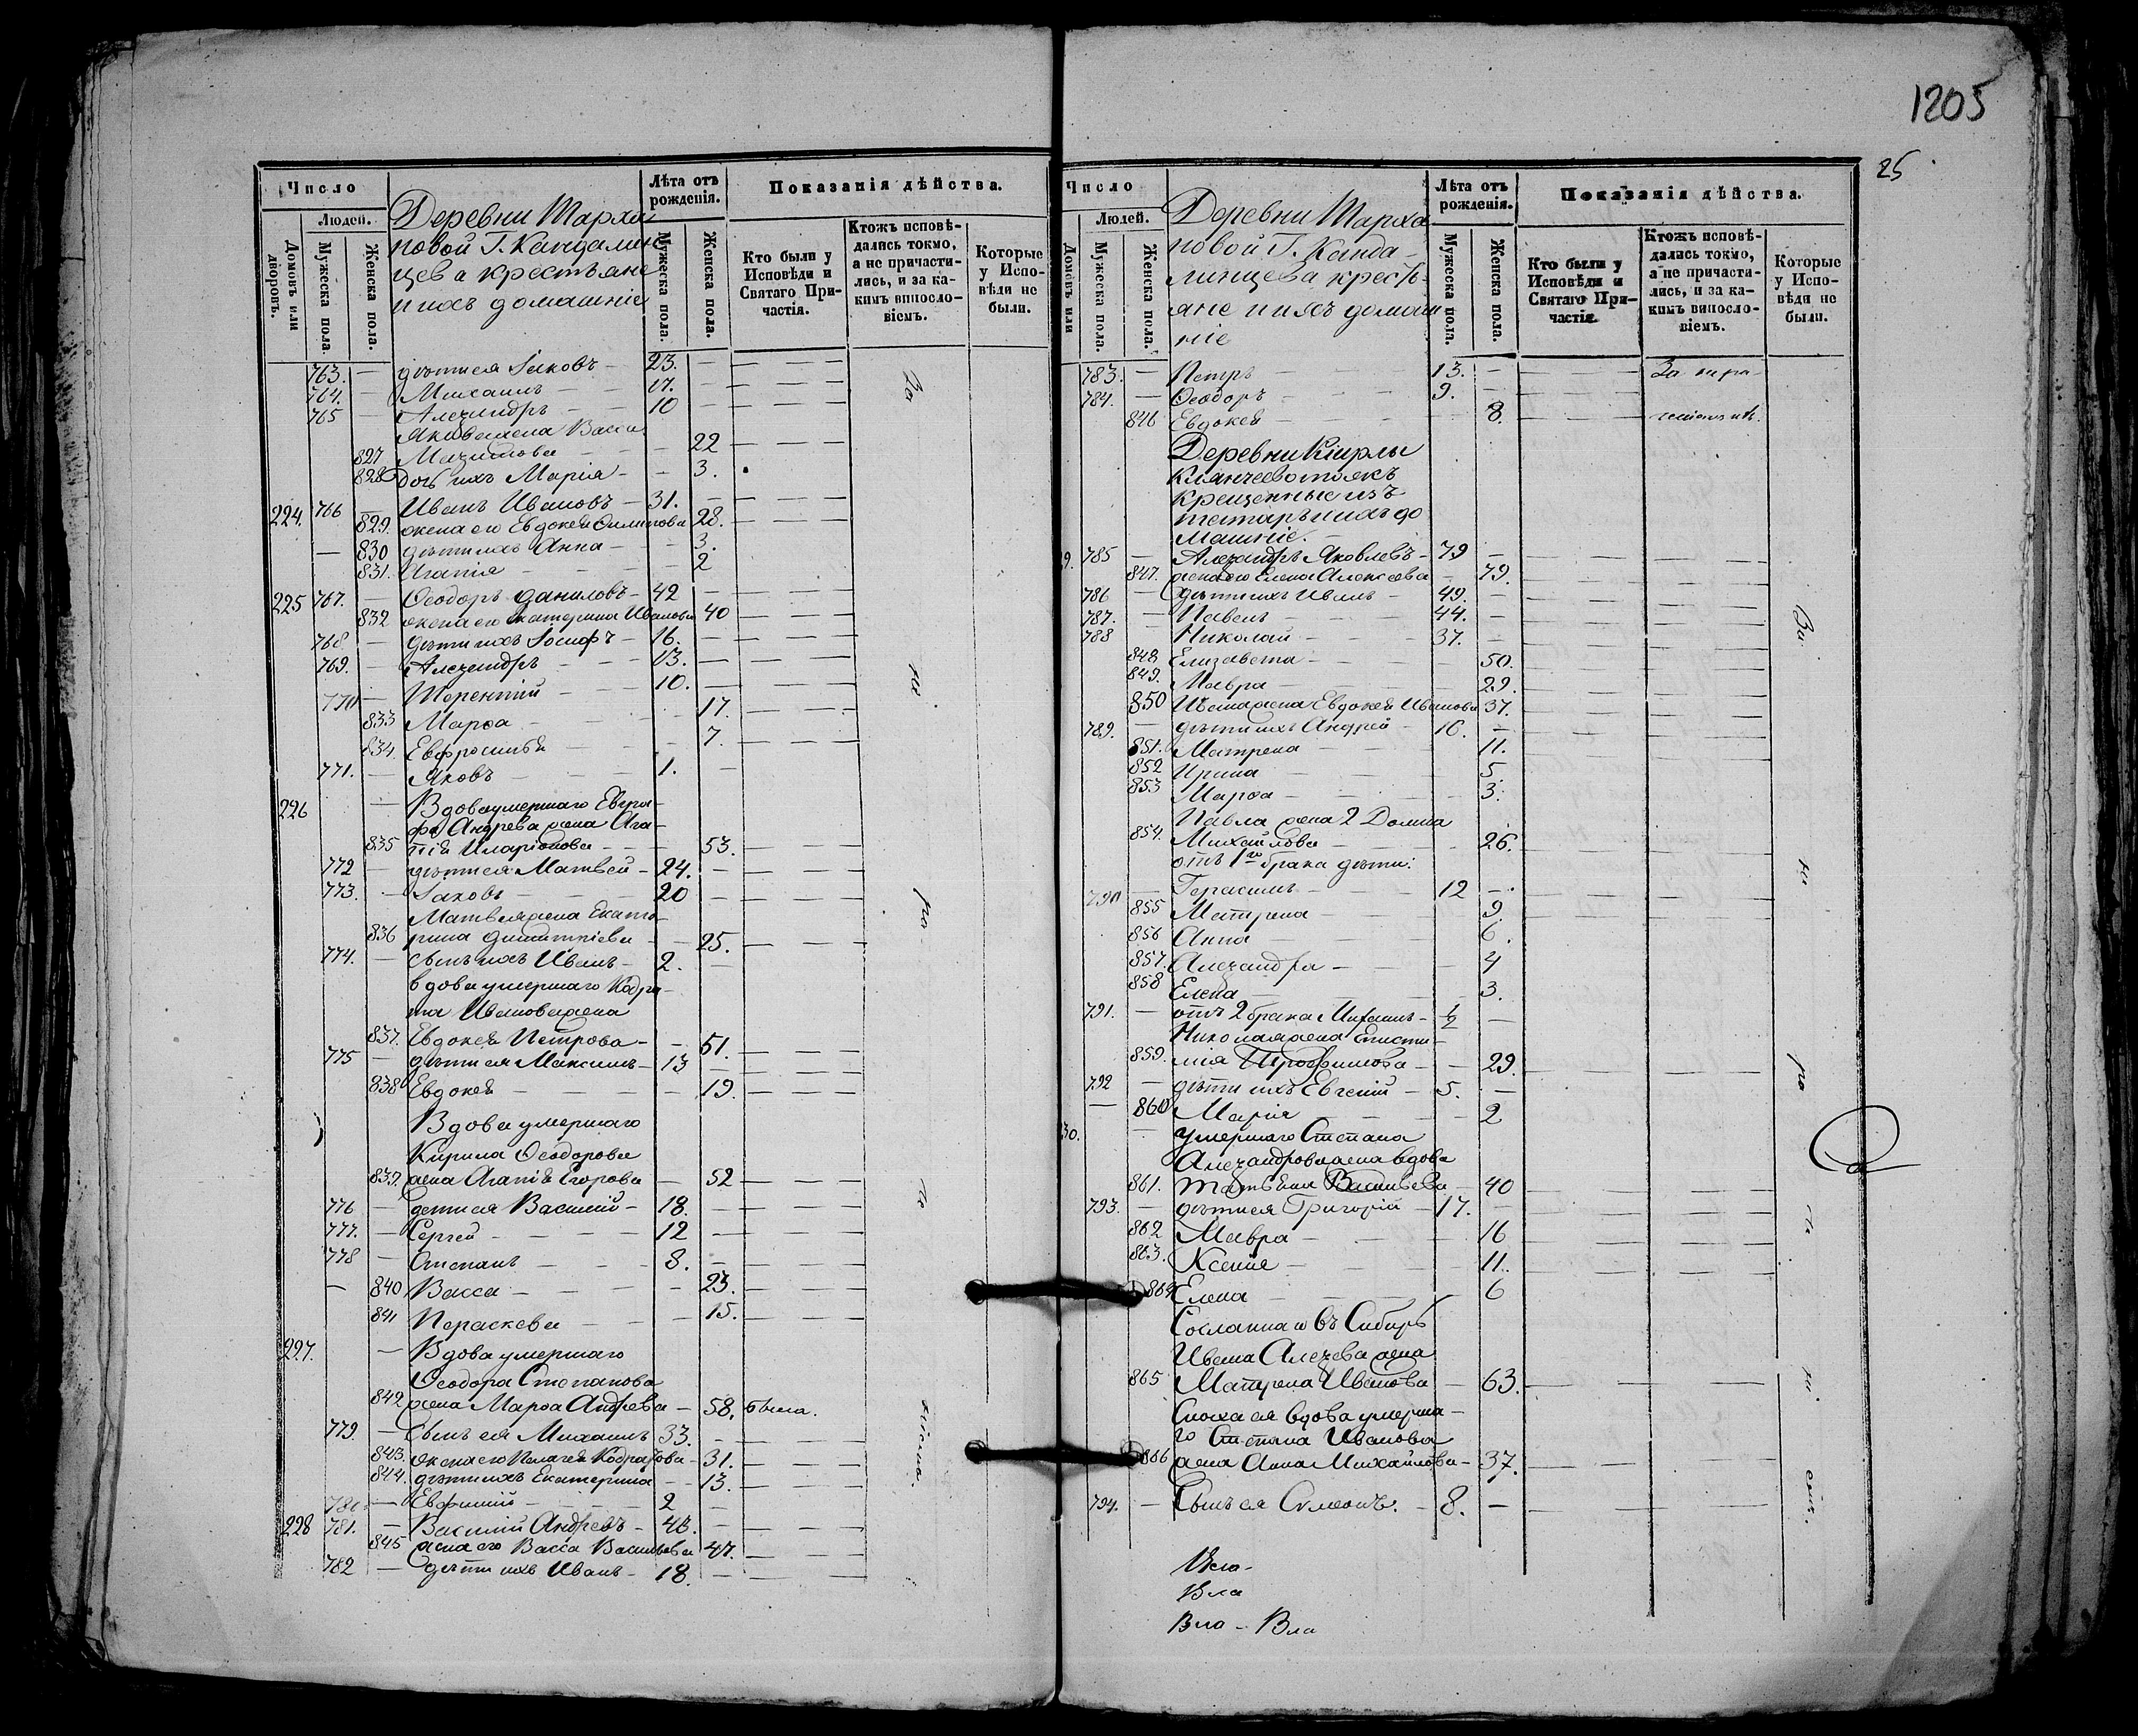 1205
25
Число
Людей.
Домовъ или дворовъ.
Мужеска пола.
Женска пола.
Деревни Тарха
новой Г. Кандалин
цева крестьяне
и ихъ домашніе
Лѣта отъ рожденія.
Мужеска пола.
Женска пола.
Показанія дѣйства.
Кто были у Исповѣди и Святаго Причастія.
Ктожъ исповѣдались токмо, а не причастились, и за какимъ винословіемъ.
Которые у Исповѣди не были.
763. — дѣти ея Іаковъ — 23.
764. — Михаилъ — 17.
765 — Александръ — 10
Якова жена Васса
827 Максимова — 22
828 Дочь ихъ Марія — 3.
224. 766 Иванъ Ивановъ — 31.
829. жена его Евдокея Филипова 28.
830 дѣти ихъ Анна — 3.
831. Агапія 2
225 767. — Ѳеодоръ Даниловъ — 42
832 жена его Екатерина Иванова 40
768 — дѣти ихъ Іосифъ — 16.
769. — Александръ — 13.
770 — Терентій — 10.
833 Марѳа — 17.
834. Евфросинья — 7.
771. — Яковъ — 1.
226 — Вдова умершаго Евгра-
фа Андреева жена Ага-
835 пія Иларіонова — 53.
772 — дѣти ея Матвей — 24.
773. — Іаковъ — 20
Матвея жена Екате-
836 рина Димитріева — 25.
774. — сынъ ихъ Иванъ — 2.
вдова умершаго Кодра-
та Иванова жена
837. Евдокея Петрова — 51.
775 — дѣти ея Максимъ — 13
838 Евдокея — 19.
Вдова умершаго
Кирила Ѳеодорова
839. жена Агапія Егорова — 52
776 — дети ея Василій — 18.
777. — Сергей — 12
778 — Степанъ — 8.
840 Васса — 23.
841 Параскева — 15.
227. — Вдова умершаго
Ѳеодора Степанова
842 жена Марѳа Андреева — 58. была.
779. — Сынъ ея Михаилъ 33.
843. жена его Пелагея Кодратова — 31.
844. дѣти ихъ Екатерина — 13.
780. — Евфимій — 2
228 781. — Василій Андреевъ — 48.
845 жена его Васса Васильева 47.
782 — дѣти ихъ Иванъ — 18.
За
не
ра
че
ніемъ.
Число
Людей.
Домовъ или
Мужеска пола.
Женска пола.
Деревни Тарха
новой Г. Канда-
линцева кресть-
яне и ихъ домаш
ніе
Лѣта отъ рожденія.
Мужеска пола.
Женска пола.
Показанія дѣйства.
Кто были у Исповѣди и Святаго Причастія.
Ктожъ исповѣдались токмо, а не причастились, и за какимъ винословіемъ.
Которые у Исповѣди не были.
783. — Петръ — 13. — За нера-
784. — Ѳеодоръ — 9.
846 Евдокея 8. ченіемъ.
Деревни Кіирлы
крещенные изъ
татаръ и ихъ до
машніе.
9. 785 — Александръ Яковлевъ — 79
847. жена его Елена Алексеева 79.
786 — дѣти ихъ Иванъ — 49.
787. — Павелъ — 44.
788 — Николай — 37.
848 Елизавета — 50.
849. Мавра — 29.
850 Ивана жена Евдокея Иванова 37.
789. — дѣти ихъ Андрей — 16.
851. Матрена — 11.
852 Ирина — 5.
853 Марѳа — 3.
Павла жена 2 Домна
854. Михайлова — 26.
отъ 1го брака дѣти:
790 — Герасимъ — 12
855 Матрена 9.
856 Анна — 6.
857. Александра — 4
858 Елена — 3.
791. — отъ 2 брака Михаилъ — ½
Николая жена Еписти-
859. мія Трофимова — 29.
792 — дѣти ихъ Евгеній — 5.
860 Марія — 2
30. — умершаго Степана
Александрова жена вдова
861. Татьяна Васильева — 40
793. — дѣти ея Григорій — 17.
862 Мавра — 16
863. Ксенія — 11.
864 Елена — 6
Сосланнаго въ Сибирь
Ивана Алексева жена
865 Матрена Иванова — 63.
Сноха ея вдова умерша-
го Степана Иванова
866 жена Анна Михайлова — 37.
794. — Сынъ ея Симеонъ. — 8.
За
не
ра
че
ні
емъ.
Вла
Вла - Вла